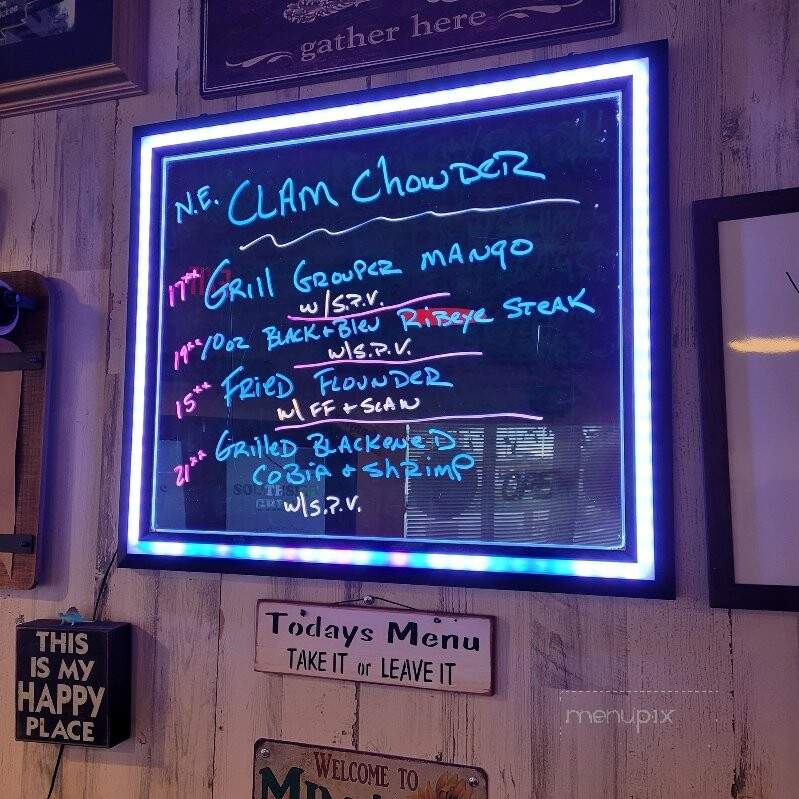 gather here
N.E. CLAM CHOWDER
17** GRill GROUPER MANGO
w/S.P.V.
19** 10oz BLACK + BLEU RIBEYE STEAK
w/S.P.V.
15** FRIED FLOUNDER
w/ FF + SLAW
21** GRilled BLACKENED
COBIA + SHRIMP
w/S.P.V.
OPEN
Todays Menu
TAKE IT or LEAVE IT
THIS
IS MY
HAPPY
PLACE
menupix
WELCOME TO